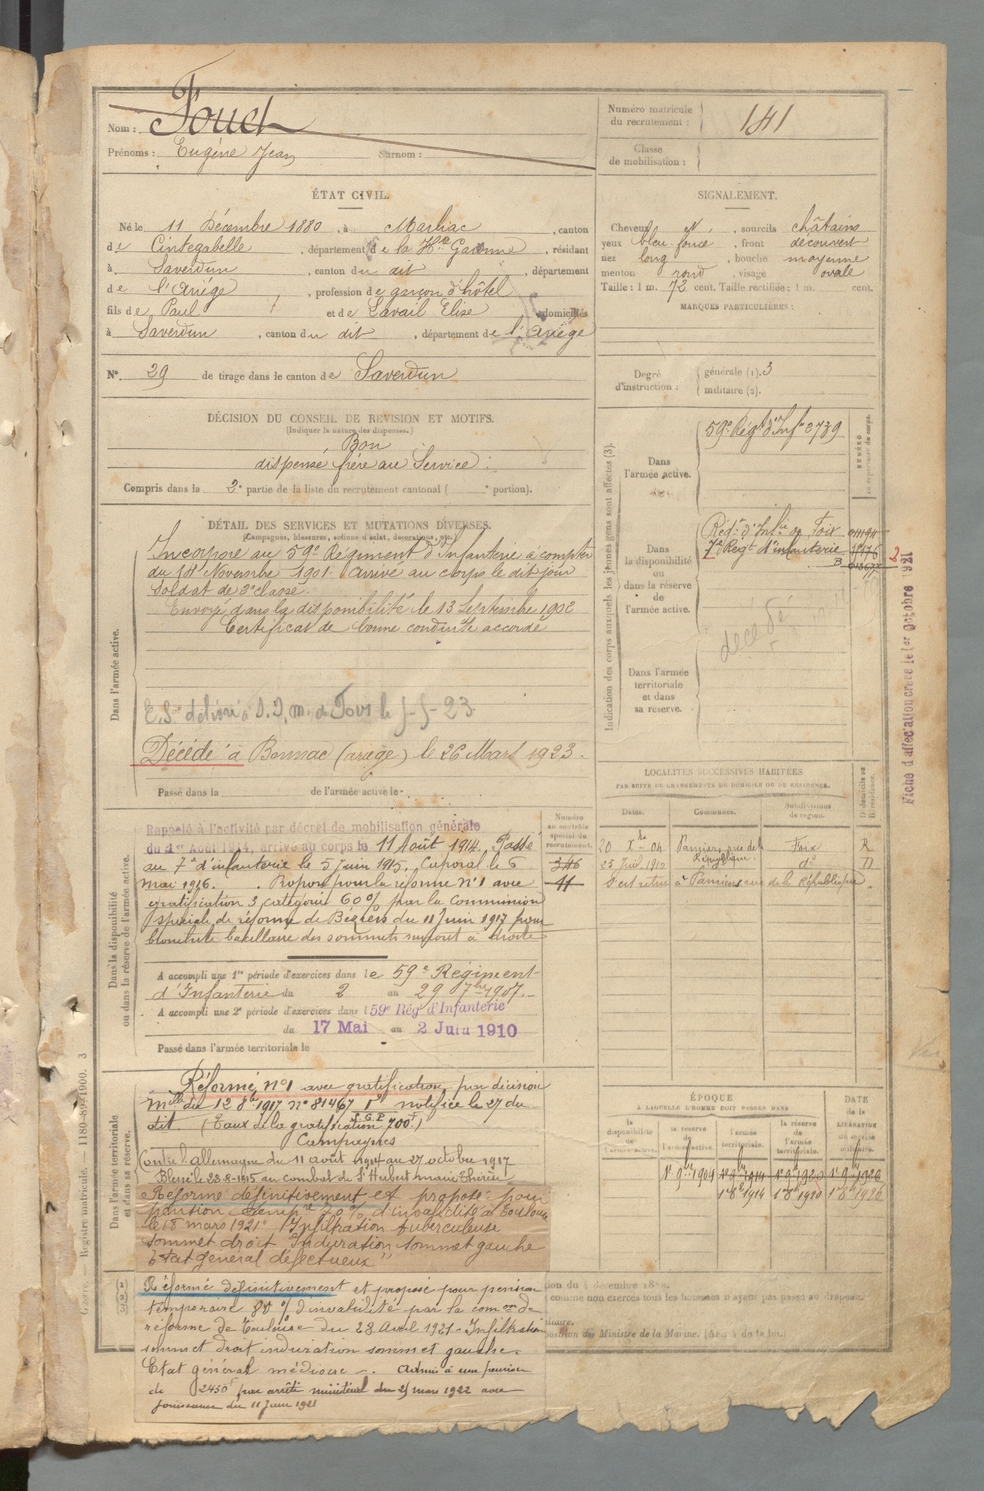 Nom : Fouch
Prénoms : Eugène Jean Surnom :
Numéro matricule du recrutement : 141
Classe de mobilisation :
ÉTAT CIVIL.
Né le 11 Décembre 1880, à Marliac, canton
de Cintegabelle, département de la Hte Garonne, résidant
à Saverdun, canton du dit, département
de l'Ariège, profession de garçon d'hôtel
fils de Paul et de Lavail Elise domiciliés
à Saverdun, canton du dit, département de l'Ariège
N° 29 de tirage dans le canton de Saverdun
SIGNALEMENT.
Cheveux, sourcils châtains
yeux bleu foncé, front découvert
nez long, bouche moyenne
menton rond, visage ovale
Taille : 1 m. 72 cent. Taille rectifiée : 1 m. cent.
MARQUES PARTICULIÈRES :
Degré d'instruction : générale (1). 3
militaire (2).
DÉCISION DU CONSEIL DE REVISION ET MOTIFS.
(Indiquer la nature des dispenses.)
Bon
dispensé frère au Service
Compris dans la 2e partie de la liste du recrutement cantonal ( e portion).
DÉTAIL DES SERVICES ET MUTATIONS DIVERSES.
(Campagnes, blessures, actions d'éclat, décorations, etc.)
Dans l'armée active.
Incorporé au 59e Régiment d'Infanterie à compter
du 14 Novembre 1901. Arrivé au corps le dit jour
Soldat de 2e classe.
Envoyé dans la disponibilité le 13 Septembre 1902
Certificat de bonne conduite accordé
Décédé à Bonnac (ariège) le 26 Mars 1923.
Passé dans la de l'armée active le
Indication des corps auxquels les jeunes gens sont affectés (3).
Dans l'armée active.
59e Régt d'Infie 3739
Dans la disponibilité ou dans la réserve de l'armée active.
Régt d'Infie de Foix
7e Régt d'infanterie
décédé
Dans l'armée territoriale et dans sa réserve.
Fiche d'affectation créée le 1er Octobre 1921
LOCALITÉS SUCCESSIVES HABITÉES
PAR SUITE DE CHANGEMENTS DE DOMICILE OU DE RÉSIDENCE.
Dates. Communes. Subdivisions de région. Domicile ou Résidence.
20 Xbre 04 Pamiers, rue de la République Foix R
S'est retiré à Pamiers rue de la République.
Dans la disponibilité ou dans la réserve de l'armée active.
Numéro au contrôle spécial du recrutement.
346
11
Rappelé à l'activité par décret de mobilisation générale
du 1er Août 1914, arrivé au corps le 11 Août 1914. Passé
au 7e d'infanterie le 5 juin 1915. Caporal le 6
mai 1916. Proposé pour la réforme N°1 avec
gratification 3 catégorie 60% par la commission
spéciale de réforme de Béziers du 11 Juin 1917 pour
bronchite bacillaire des sommets surtout à droite
A accompli une 1re période d'exercices dans le 59e Régiment
d'Infanterie du 2 au 29 7bre 1907.
A accompli une 2e période d'exercices dans l 59e Rég d'Infanterie
du 17 Mai au 2 Juin 1910
Passé dans l'armée territoriale le
Dans l'armée territoriale et dans sa réserve.
Réformé n°1 avec gratification par décision
mlle du 12 8bre 1917 N° 81467 notifiée le 27 du
dit (Taux de la gratification 700f)
Campagnes
Contre l'allemagne du 11 août 1914 au 27 octobre 1917
Blessé le 23-8-1915 au combat de St Hubert Marie Thérèse
Réformé définitivement et proposé pour
pension temp. 70% d'invalidité à Toulouse
le 18 mars 1921 "Infiltration tuberculeuse
sommet droit Induration sommet gauche
Etat général défectueux"
Réformé définitivement et proposé pour pension
temporaire 80% d'invalidité par la comon de
réforme de Toulouse du 28 Avril 1921 - Infiltration
sommet droit induration sommet gauche.
Etat général médiocre. Admis à une pension
de 2450f par arrêté ministériel du 25 mars 1922 avec
jouissance du 11 Juin 1921
ÉPOQUE
À LAQUELLE L'HOMME DOIT PASSER DANS
la disponibilité de l'armée active. la réserve de l'armée active. l'armée territoriale. la réserve de l'armée territoriale.
DATE de la LIBÉRATION du service militaire.
1er 9bre 1904 1er 9bre 1914 1er 9bre 1920 1er 9bre 1926
1er 8bre 1914 1er 8bre 1920 1er 8bre 1926